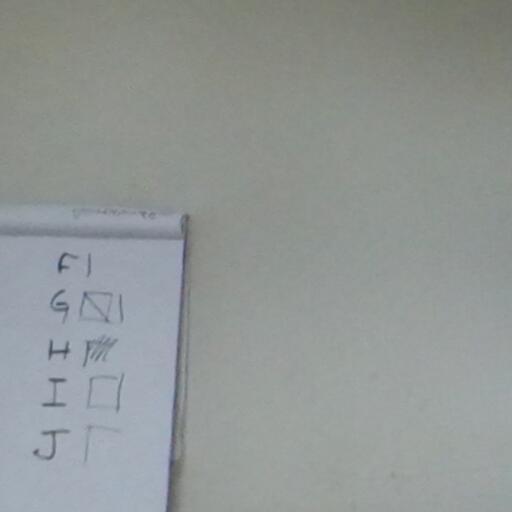 F |
G
H
I
J